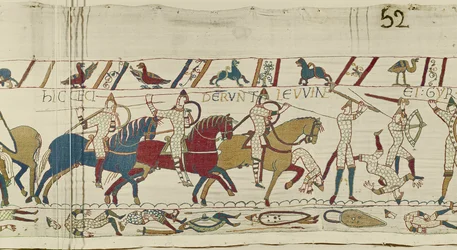 52
HIC CECI DERVNT LEVVIN ET GYR